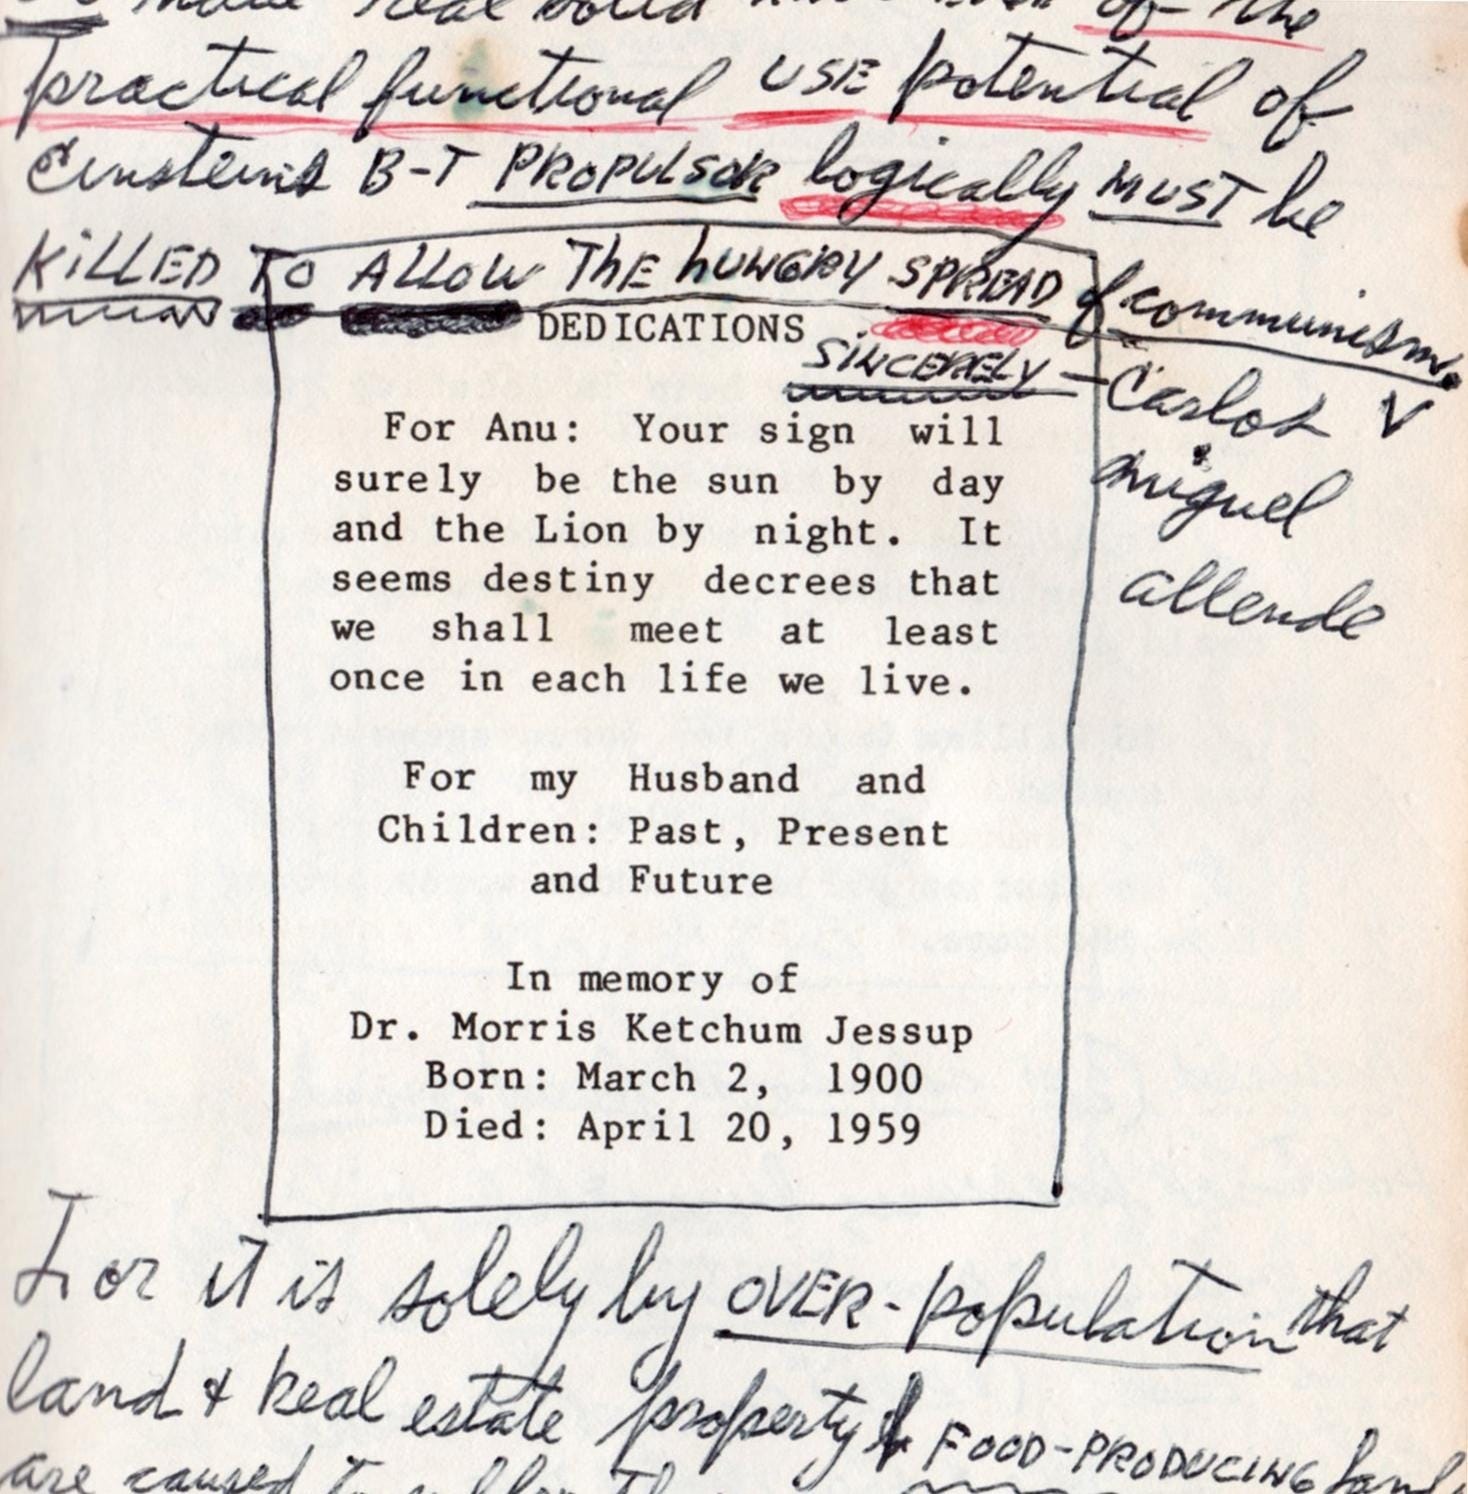 of the
practical functional USE potential of
Einsteins B-T PROPULSOR logically MUST be
KiLLED TO ALLOW ThE hUNGRY SPREAD of communism.
DEDICATIONS
SiNCERELY — Carlos
Miguel
allende
For Anu: Your sign will
surely be the sun by day
and the Lion by night. It
seems destiny decrees that
we shall meet at least
once in each life we live.
For my Husband and
Children: Past, Present
and Future
In memory of
Dr. Morris Ketchum Jessup
Born: March 2, 1900
Died: April 20, 1959
For it is solely by OVER-population that
land & Real estate property & FOOD-PRODUCING land
are caused to